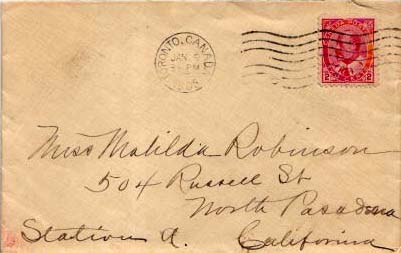 TORONTO, CANADA
JAN 5
PM
Miss Matilda Robinson
504 Russell St
North Pasadena
Station A. California